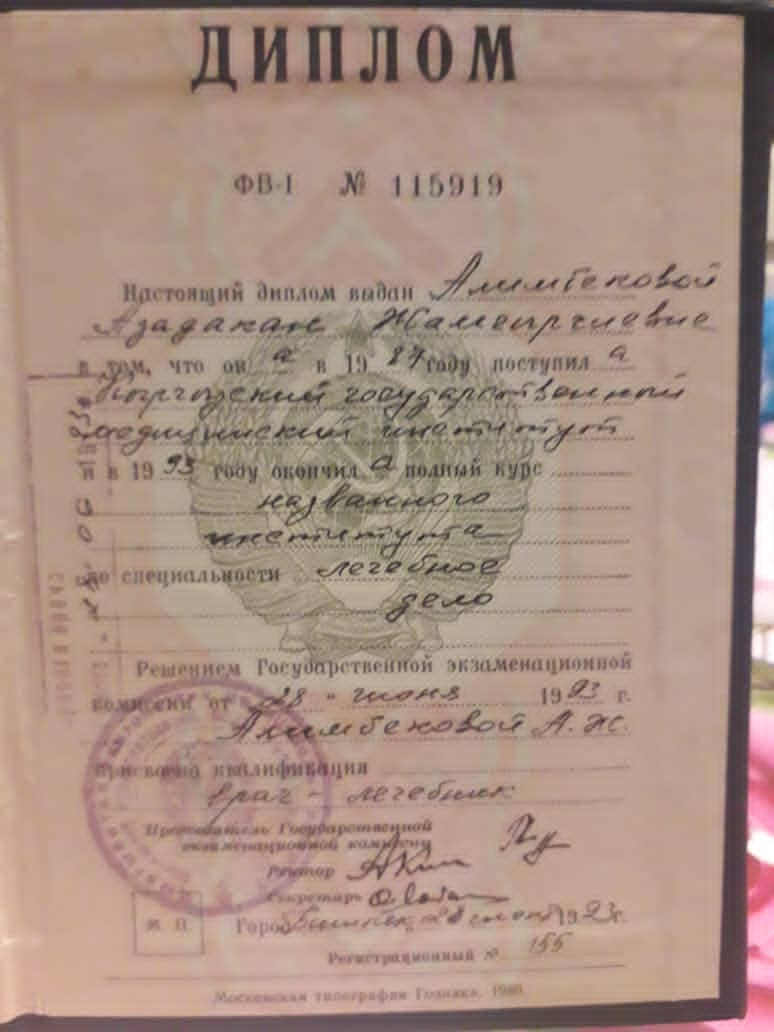 ДИПЛОМ
ФВ-I № 115919
Настоящий диплом выдан Алимбековой
Азадакан
в том, что он а в 19 87 году поступил а
Кыргызский государственный
медицинский институт
и в 19 93 году окончил а полный курс
названного
института
по специальности лечебное
дело
Решением Государственной экзаменационной
комиссии от " 28 " июня 19 93 г.
Алимбековой А. Ж.
присвоена квалификация
врач - лечебник
Председатель Государственной
экзаменационной комиссии
Ректор
Секретарь
Город Бишкек 28 июня 19 93 г.
М. П.
Регистрационный № 155
Московская типография Гознака.